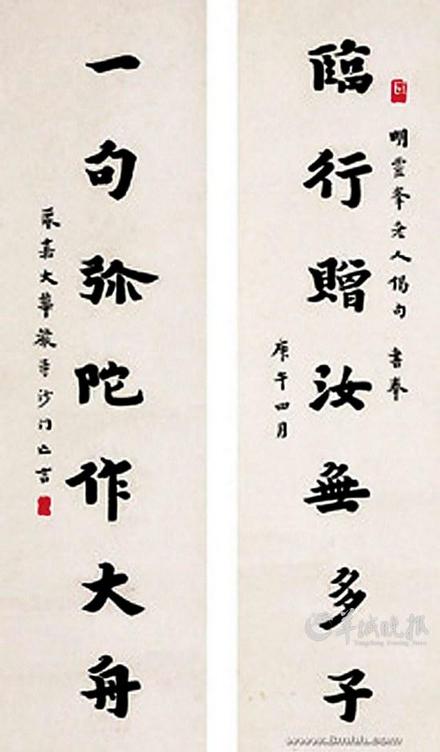 臨行贈汝無多子
明靈峯老人偈句 書奉
庚午四月
一句弥陀作大舟
嘉大華嚴寺沙门亡言
羊城晚报
Yangcheng Evening News